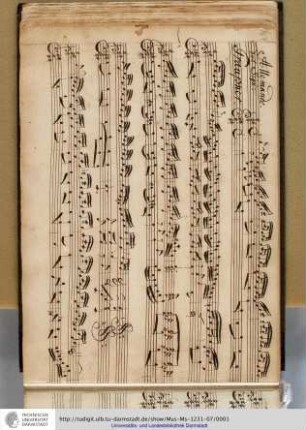 Allemande
http://tudigit.ulb.tu-darmstadt.de/show/Mus-Ms-1231-07/0001
Universitäts- und Landesbibliothek Darmstadt
TECHNISCHE
UNIVERSITÄT
DARMSTADT